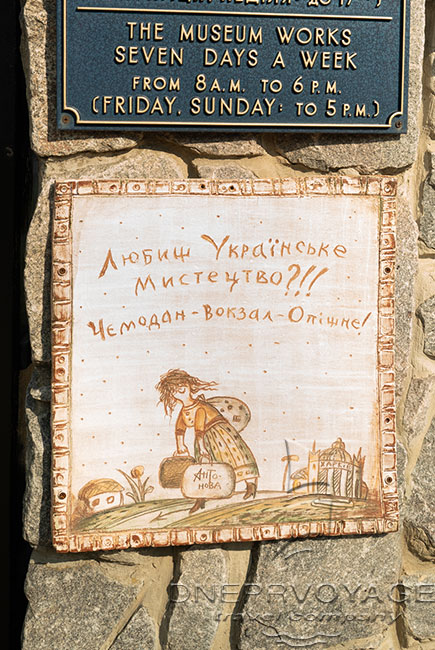 THE MUSEUM WORKS
SEVEN DAYS A WEEK
FROM 8 A.M. TO 6 P.M.
(FRIDAY, SUNDAY: TO 5 P.M.)
Любиш Українське
мистецтво?!!
Чемодан-Вокзал-Опішне!
АНТО-
НОВА
DNEPRVOYAGE
travel company